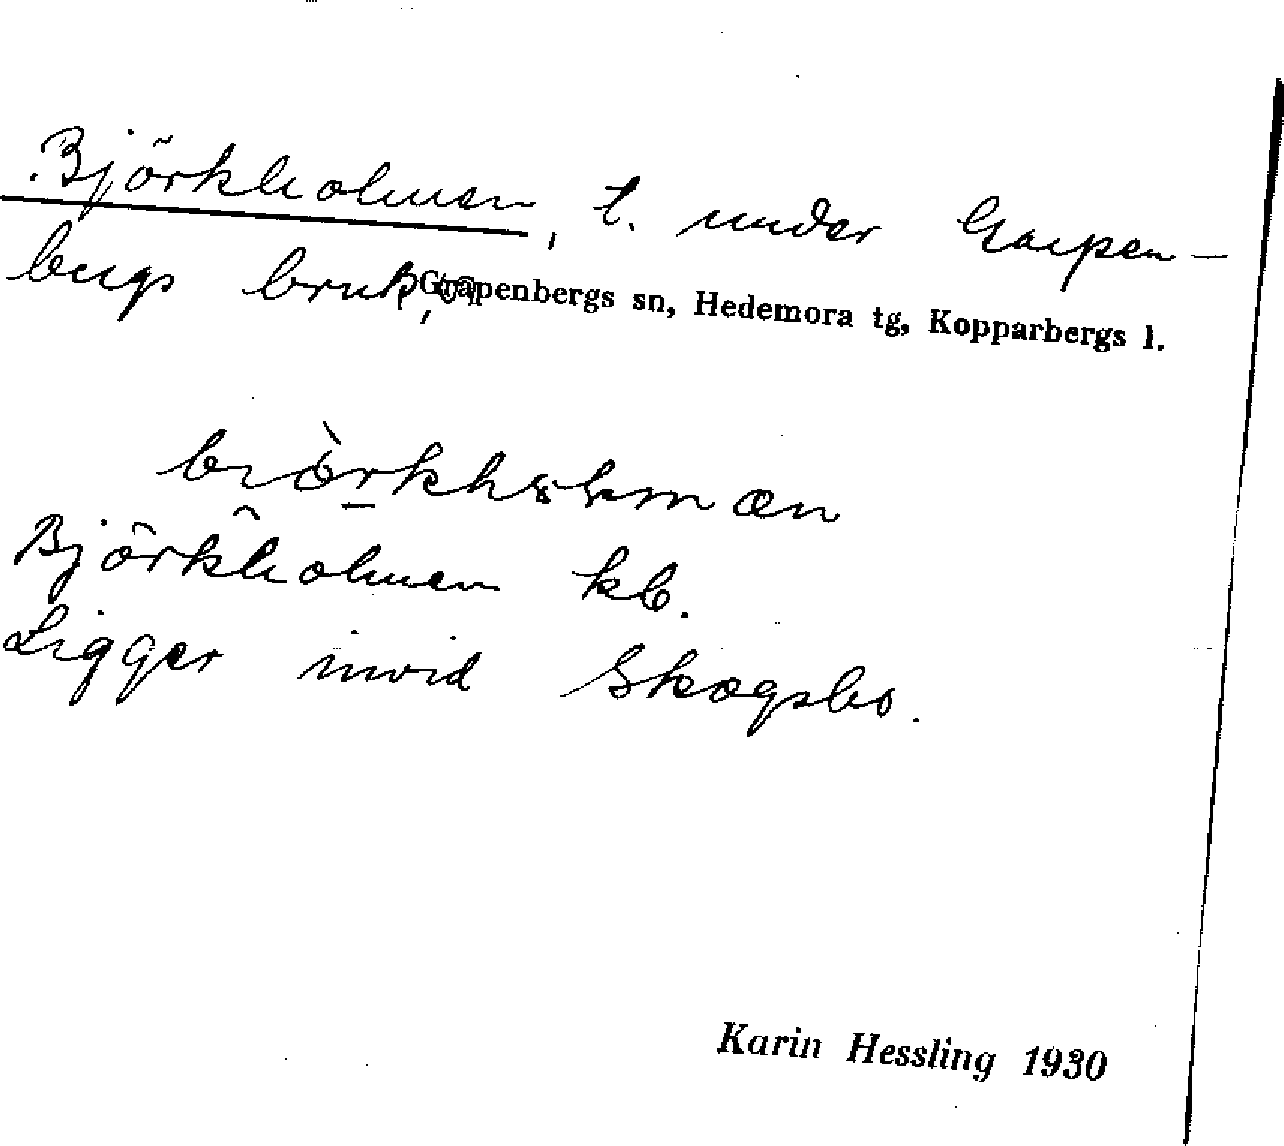 Björkholmen, t. under Garpen-
bergs bruk, Garpenbergs sn, Hedemora tg, Kopparbergs l.
Björkholmen kb.
Ligger invid Skogsbo.
Karin Hessling 1930